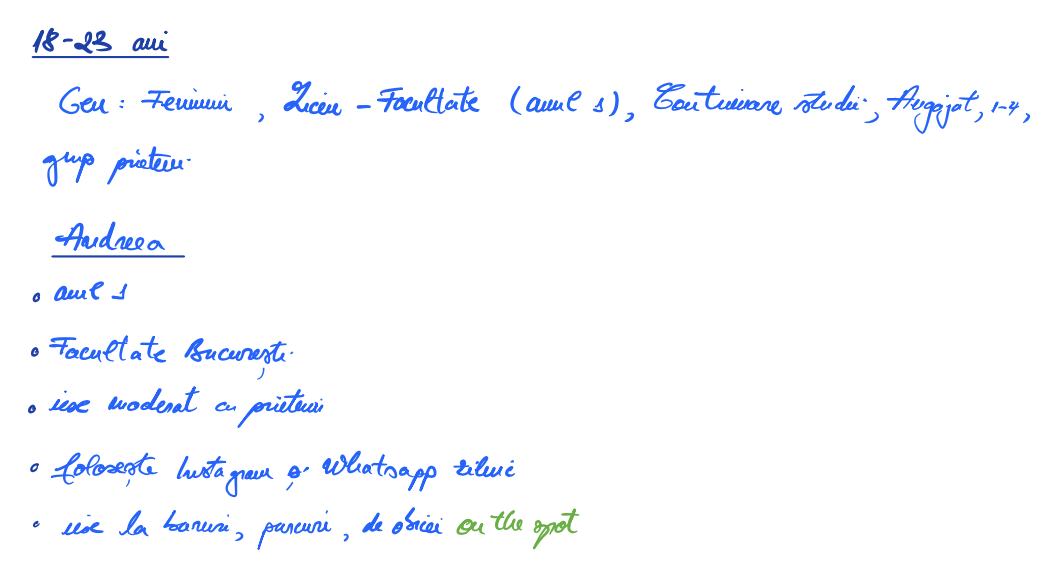 18-23 ani
Gen: Feminin, Liceu - Facultate (anul 1), Continuare studii, Angajat, 1-4,
grup prieteni
Andreea
• anul 1
• Facultate București
• iese moderat cu prietenii
• folosește Instagram și Whatsapp zilnic
• iese la baruri, parcuri, de obicei on the spot